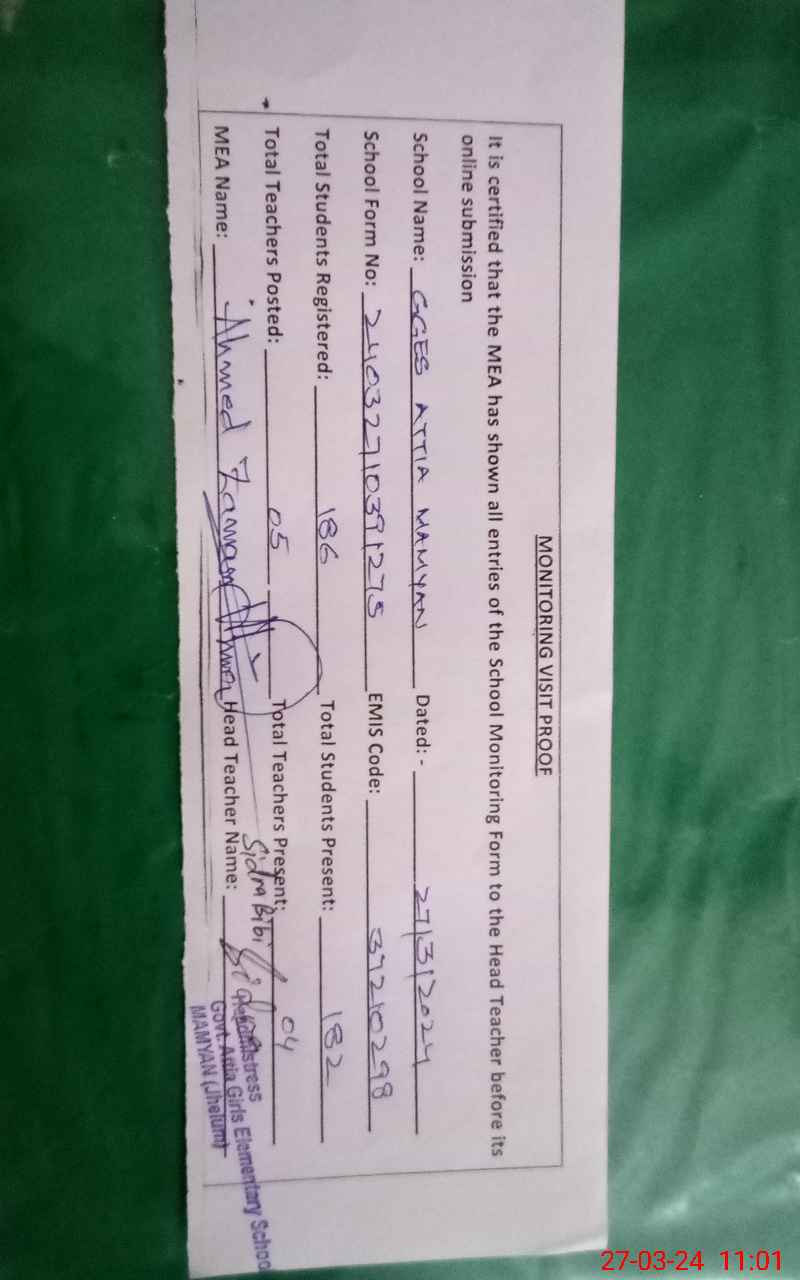 MONITORING VISIT PROOF
It is certified that the MEA has shown all entries of the School Monitoring Form to the Head Teacher before its
online submission
School Name: GGES ATTIA MAMYAN Dated: - 27/3/2024
School Form No: 24032710391275 EMIS Code: 37210298
Total Students Registered: 186 Total Students Present: 182
Total Teachers Posted: 05 Total Teachers Present: 04
MEA Name: Ahmed Zaman Head Teacher Name: Sidra Bibi
Headmistress
Govt. Attia Girls Elementary School
MAMYAN (Jhelum)
27-03-24 11:01